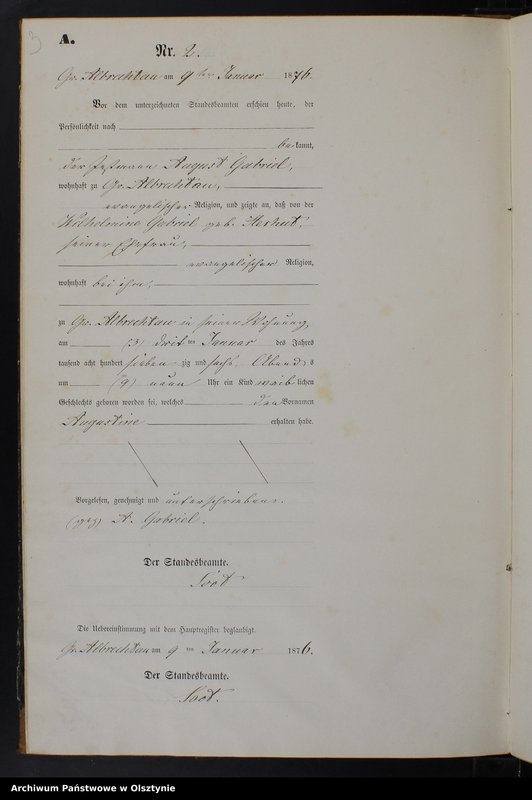 3
A.
Nr. 2.
Gr. Albrechtau am 9ten Januar 1876.
Vor dem unterzeichneten Standesbeamten erschien heute, der
Persönlichkeit nach
bekannt,
der August Gabriel,
wohnhaft zu Gr. Albrechtau,
evangelischer Religion, und zeigte an, daß von der
Wilhelmine Gabriel geb.
seiner Ehefrau,
evangelischer Religion,
wohnhaft bei ihm,
zu Gr. Albrechtau in seiner Wohnung
am (3) drit ten Januar des Jahres
tausend acht hundert sieben zig und sechs, Abends
um (9) neun Uhr ein Kind weib lichen
Geschlechts geboren worden sei, welches den Vornamen
Augustine erhalten habe.
Vorgelesen, genehmigt und unterschrieben.
(gez) A. Gabriel.
Der Standesbeamte.
Die Uebereinstimmung mit dem Hauptregister beglaubigt.
Gr. Albrechtau am 9 ten Januar 1876.
Der Standesbeamte.
Archiwum Państwowe w Olsztynie